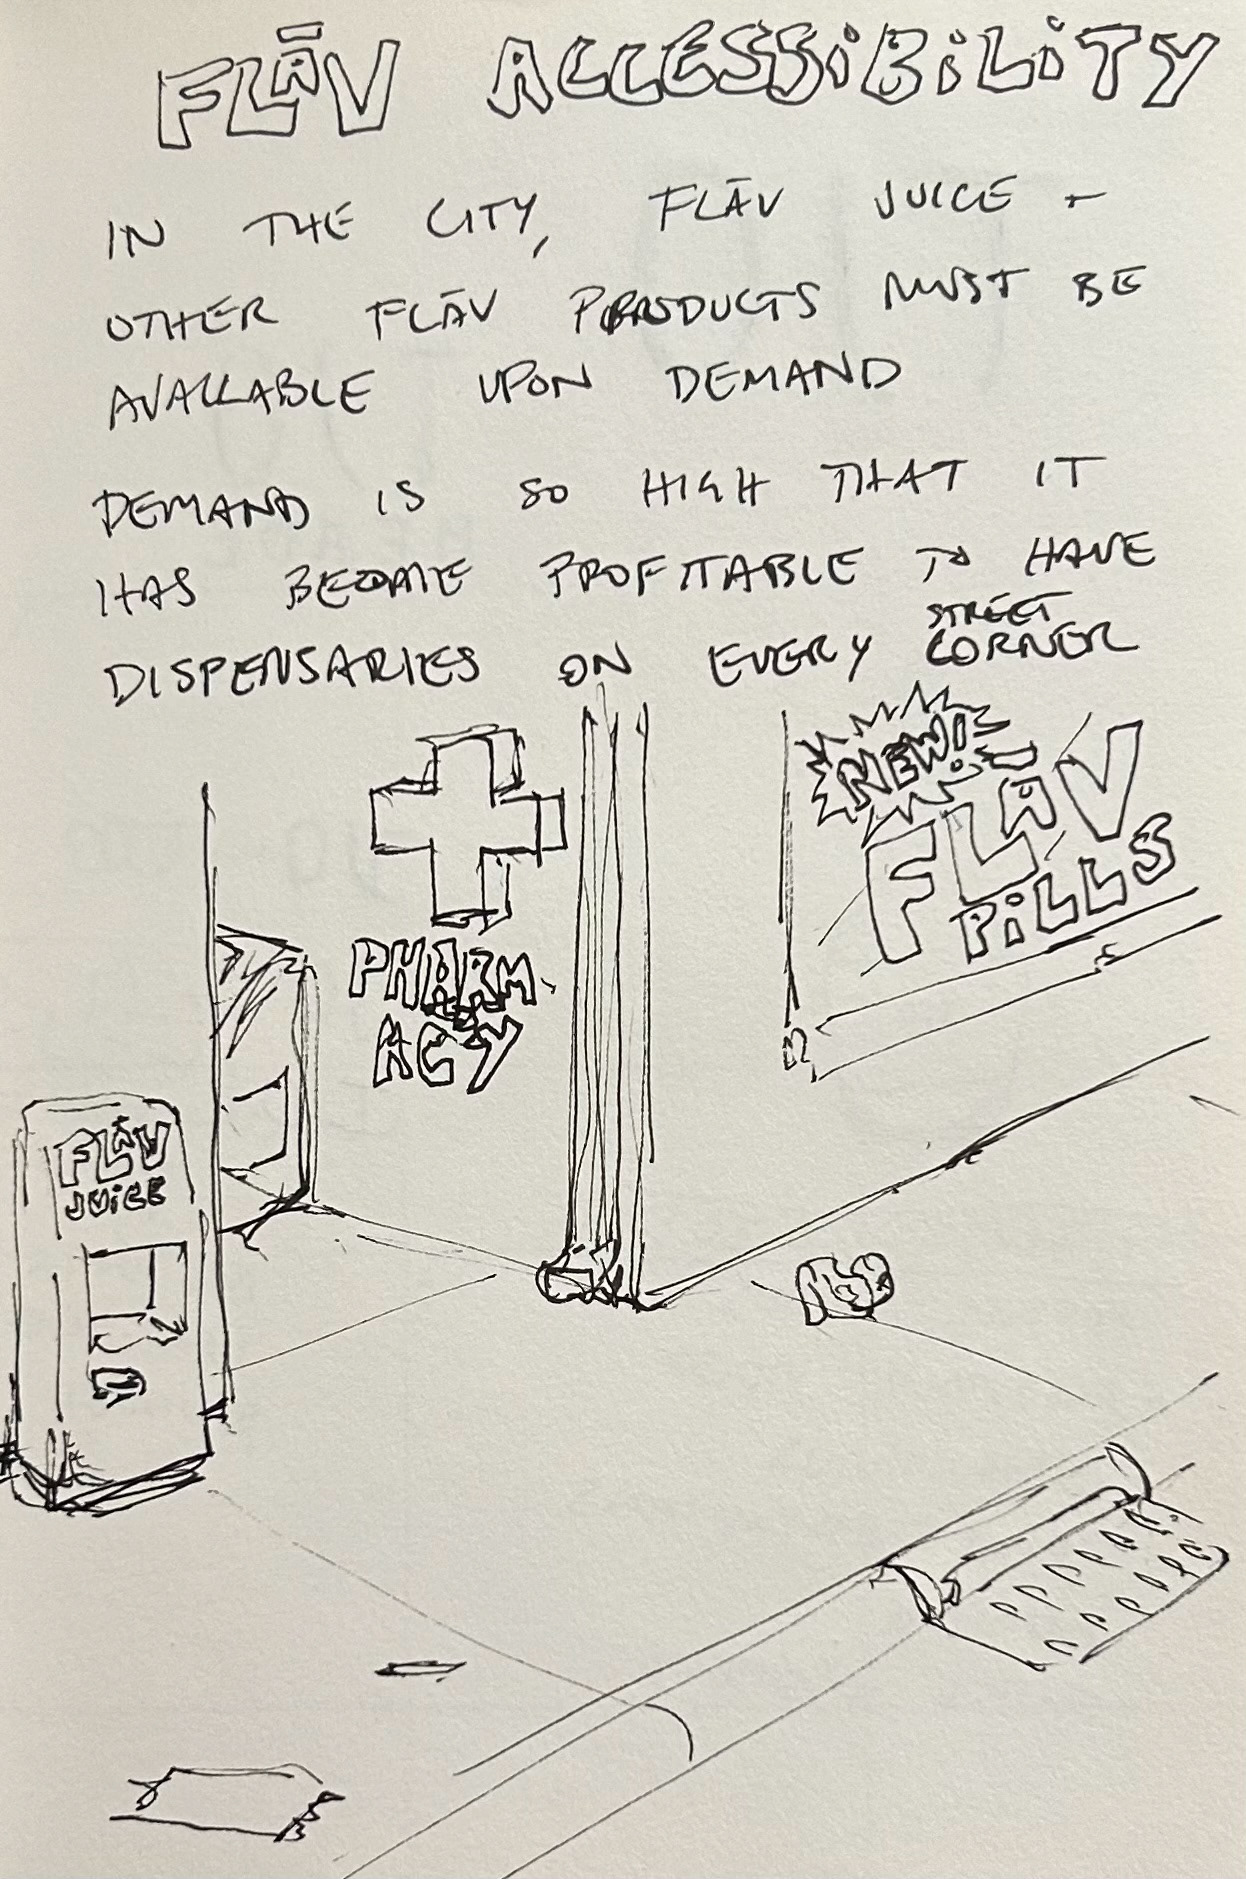 FLĀV ACCESSIBILITY
IN THE CITY, FLĀV JUICE +
OTHER FLĀV PRODUCTS MUST BE
AVAILABLE UPON DEMAND
DEMAND IS SO HIGH THAT IT
HAS BECOME PROFITABLE TO HAVE
DISPENSARIES ON EVERY STREET CORNER
NEW!
FLĀV
PILLS
PHARM-
ACY
FLĀV
JUICE